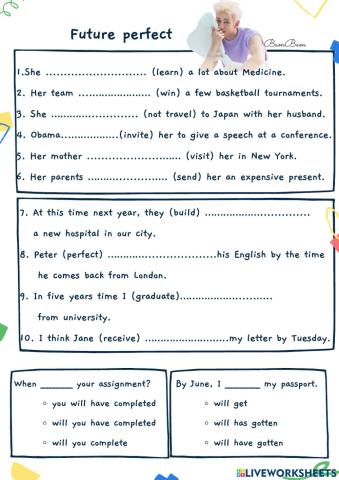 Future perfect
BamBam
1.She ............................ (learn) a lot about Medicine.
2. Her team ....................... (win) a few basketball tournaments.
3. She ........................ (not travel) to Japan with her husband.
4. Obama.................(invite) her to give a speech at a conference.
5. Her mother .......................... (visit) her in New York.
6. Her parents ...................... (send) her an expensive present.
7. At this time next year, they (build) .............................
a new hospital in our city.
8. Peter (perfect) ..............................his English by the time
he comes back from London.
9. In five years time I (graduate)..........................
from university.
10. I think Jane (receive) .......................my letter by Tuesday.
When ______ your assignment?
you will have completed
will you have completed
will you complete
By June, I ______ my passport.
will get
will has gotten
will have gotten
LIVEWORKSHEETS